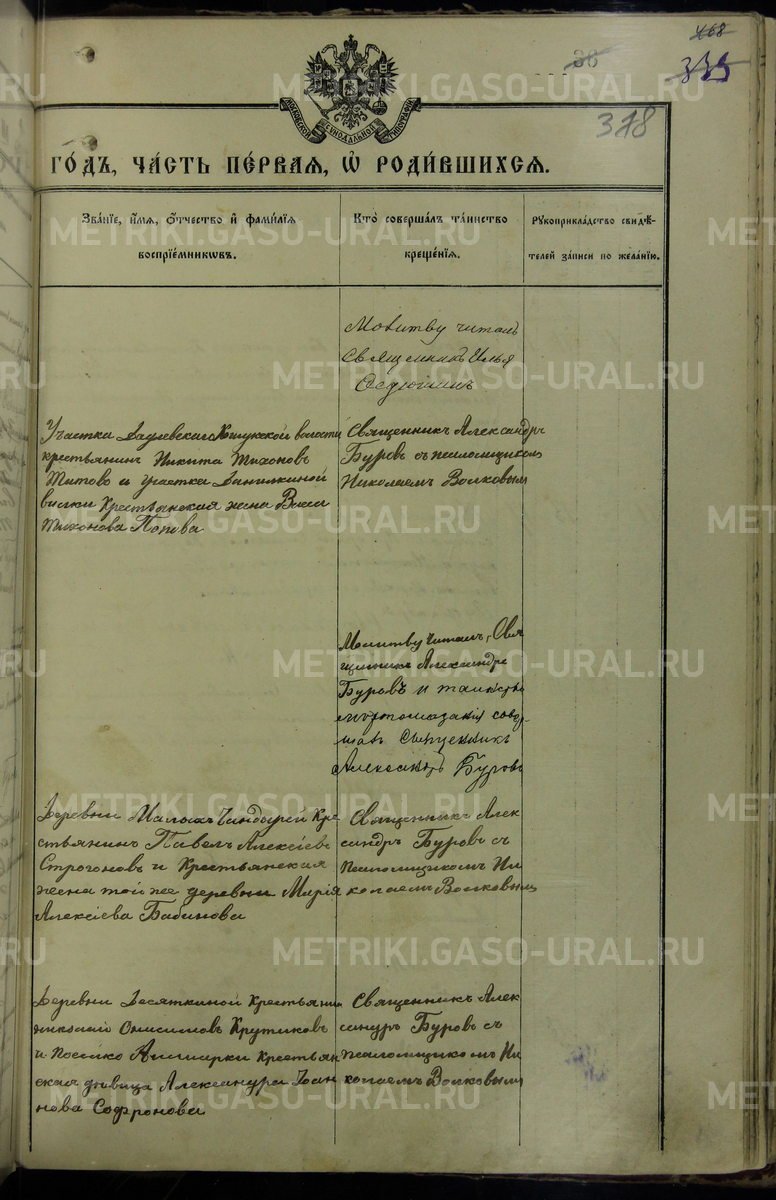 468
38
335
318
МОСКОВСКОЙ СѴНОДАЛЬНОЙ ТИПОГРАФІИ
ГОДЪ, ЧАСТЬ ПЕРВАЯ, Ѡ РОДИВШИХСЯ.
Званіе, имя, отчество и фамилія
воспріемниковъ.
Кто совершалъ таинство
крещенія.
Рукоприкладство свидѣ-
телей записи по желанію.
Молитву читалъ
священникъ Илья
Участка
волости
крестьянинъ Никита Тихоновъ
Титовъ и участка
крестьянская жена
Тихонова Попова
Священникъ Александръ
Буровъ съ псаломщикомъ
Николаемъ Волковымъ
Молитву читалъ Свя
щенникъ Александръ
Буровъ и таинство
мѵропомазанія совер
шалъ Священникъ
Александръ Буровъ
Деревни Малой Чандырей кре
стьянинъ Павелъ Алексіевъ
Строгоновъ и Крестьянская
жена той же деревни Марія
Алексіева Бабинова
Священникъ Алек
сандръ Буровъ съ
Псаломщикомъ Ни
колаемъ Волковымъ
Деревни Десяткиной Крестьянин
Николай Онисимовъ Крутиковъ
и Крестьян
ская дѣвица Александра Іоан
нова Софронова
Священникъ Алек
сандръ Буровъ съ
псаломщикомъ Ни
колаемъ Волковымъ
METRIKI.GASO-URAL.RU